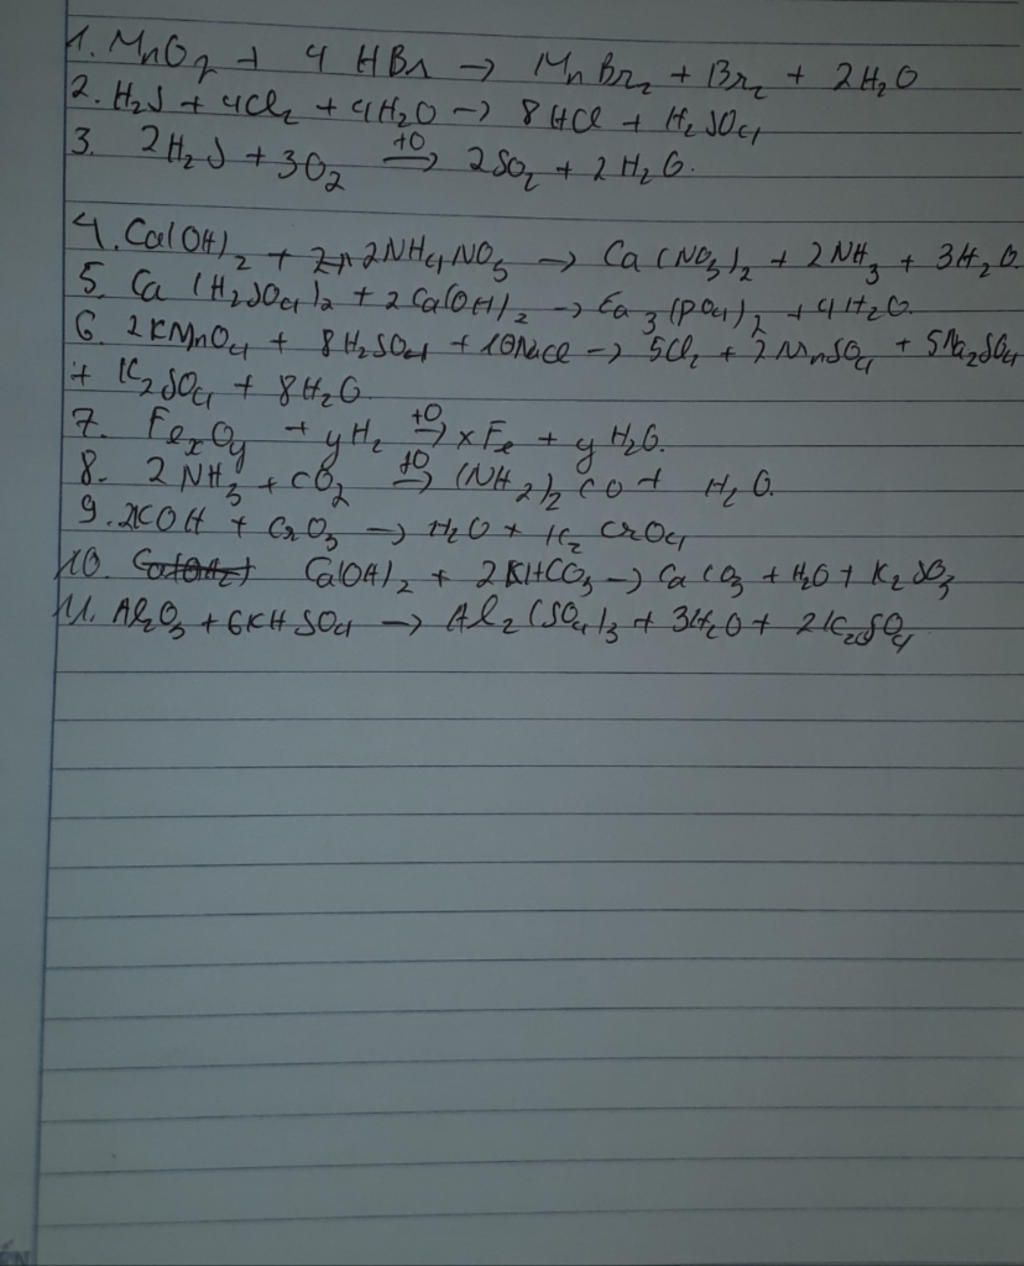 1. MnO2 + 4 HBr → MnBr2 + Br2 + 2H2O
2. H2S + 4Cl2 + 4H2O → 8HCl + H2SO4
3. 2H2S + 3O2 →(t0) 2SO2 + 2H2O.
4. Ca(OH)2 + 2NH4NO3 → Ca(NO3)2 + 2NH3 + 3H2O.
5. Ca(H2SO4)2 + 2Ca(OH)2 → Ca3(PO4)2 + 4H2O.
6. 2KMnO4 + 8H2SO4 + 10NaCl → 5Cl2 + 2MnSO4 + 5Na2SO4
+ K2SO4 + 8H2O.
7. FexOy + yH2 →(t0) xFe + yH2O.
8. 2NH3 + CO2 →(t0) (NH2)2CO + H2O.
9. 2KOH + CrO3 → H2O + K2CrO4
10. Ca(OH)2 + 2KHCO3 → CaCO3 + H2O + K2SO3
11. Al2O3 + 6KHSO4 → Al2(SO4)3 + 3H2O + 2K2SO4